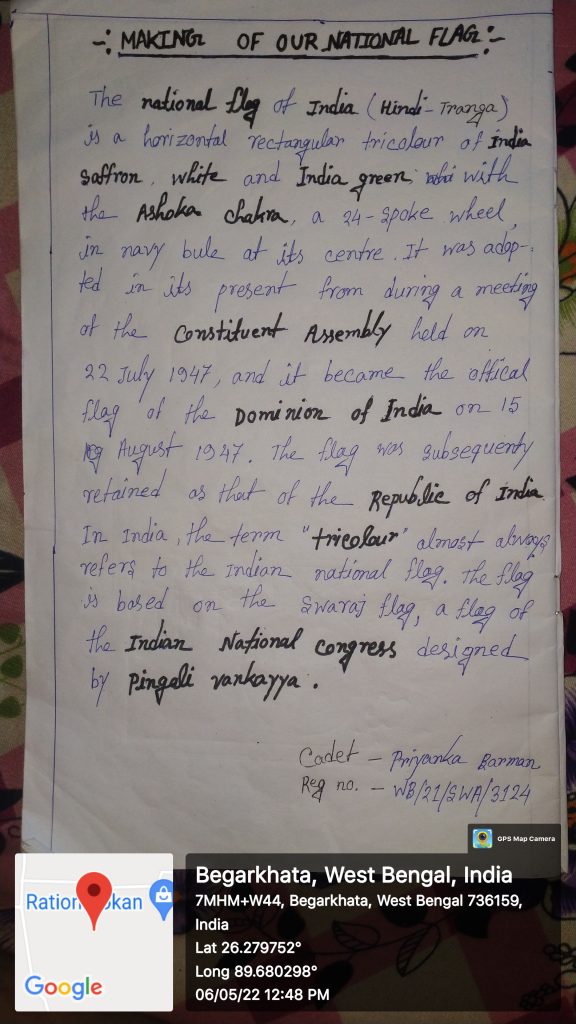 -: MAKING OF OUR NATIONAL FLAG :-
The national flag of India (Hindi - Tranga)
is a horizontal rectangular tricolour of India
saffron, white and India green with
the Ashoka chakra, a 24-spoke wheel,
in navy bule at its centre. It was adop-
ted in its present from during a meeting
of the Constituent Assembly held on
22 July 1947, and it became the offical
flag of the Dominion of India on 15
August 1947. The flag was subsequenty
retained as that of the Republic of India.
In India, the term "tricolour" almost always
refers to the Indian national flag. The flag
is based on the Swaraj flag, a flag of
the Indian National Congress designed
by Pingali vankayya.
Cadet - Priyanka Barman
Reg no. - WB/21/SWA/3124
GPS Map Camera
Begarkhata, West Bengal, India
7MHM+W44, Begarkhata, West Bengal 736159,
India
Lat 26.279752°
Long 89.680298°
06/05/22 12:48 PM
Google